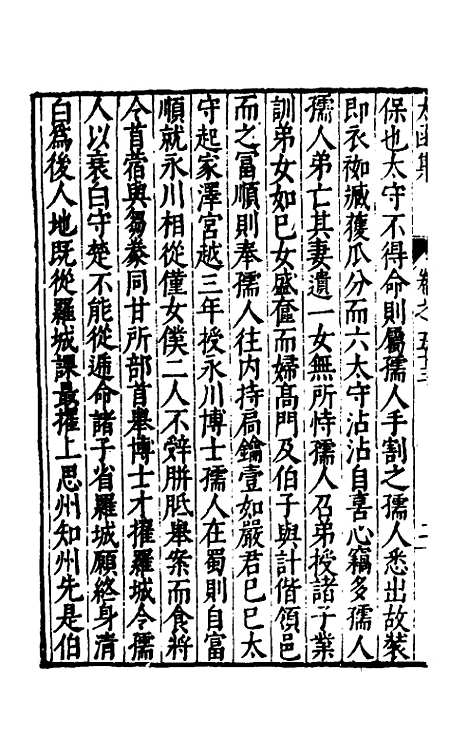 太函集　卷之五十三　二
保也太守不得命則屬孺人手割之孺人悉出故裝
即衣袽臧獲瓜分而六太守沾沾自喜心竊多孺人
孺人弟亡其妻遺一女無所恃孺人召弟授諸子業
訓弟女如已女盛奩而婦高門及伯子與計偕領邑
而之富順則奉孺人往內持局鑰壹如嚴君已巳太
守起家澤宮越三年授永川博士孺人在蜀則自富
順就永川相從僮女僕二人不辤胼胝舉案而食將
令苜蓿與芻豢同甘所部首舉博士才擢羅城令孺
人以衰白守楚不能從遁命諸子省羅城願終身清
白爲後人地既從羅城課最擢上思州知州先是伯